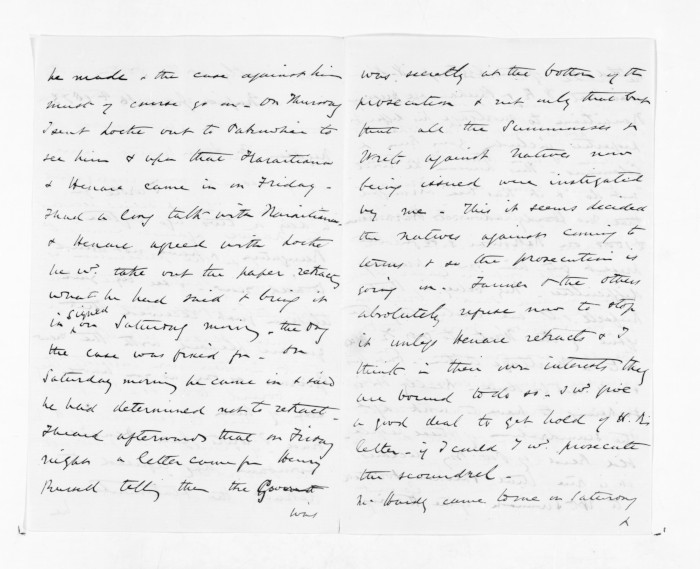 he made & the case against him
must of course go on - On Thursday
I sent Locke out to Pakowhai to
see him & upon that Karaitiana
& Henare came in on Friday -
I had a long talk with Karaitiana
& Henare agreed with Locke
he wd. take out the paper retracting
what he had said & bring it
in signed on Saturday morning, the day
the case was fixed for - On
Saturday morning he came in & said
he had determined not to retract -
I heard afterwards that on Friday
night a letter came from Henry
Russell telling them the Governt
was
was secretly at the bottom of the
prosecution & not only that but
that all the Summonses &
Writs against Natives now
being issued were instigated
by me - This it seems decided
the Natives against coming to
terms & so the prosecution is
going on - Tanner & the others
absolutely refuse now to stop
it unless Henare retracts & I
think in their own interests they
are bound to do so - I wd. give
a good deal to get hold of H. R's
letter - if I could I wd. prosecute
the scoundrel
came to me on Saturday
&